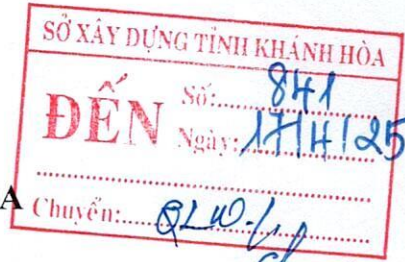 SỞ XÂY DỰNG TỈNH KHÁNH HÒA
ĐẾN
Số: 841
Ngày: 17/4/25
A
Chuyển: